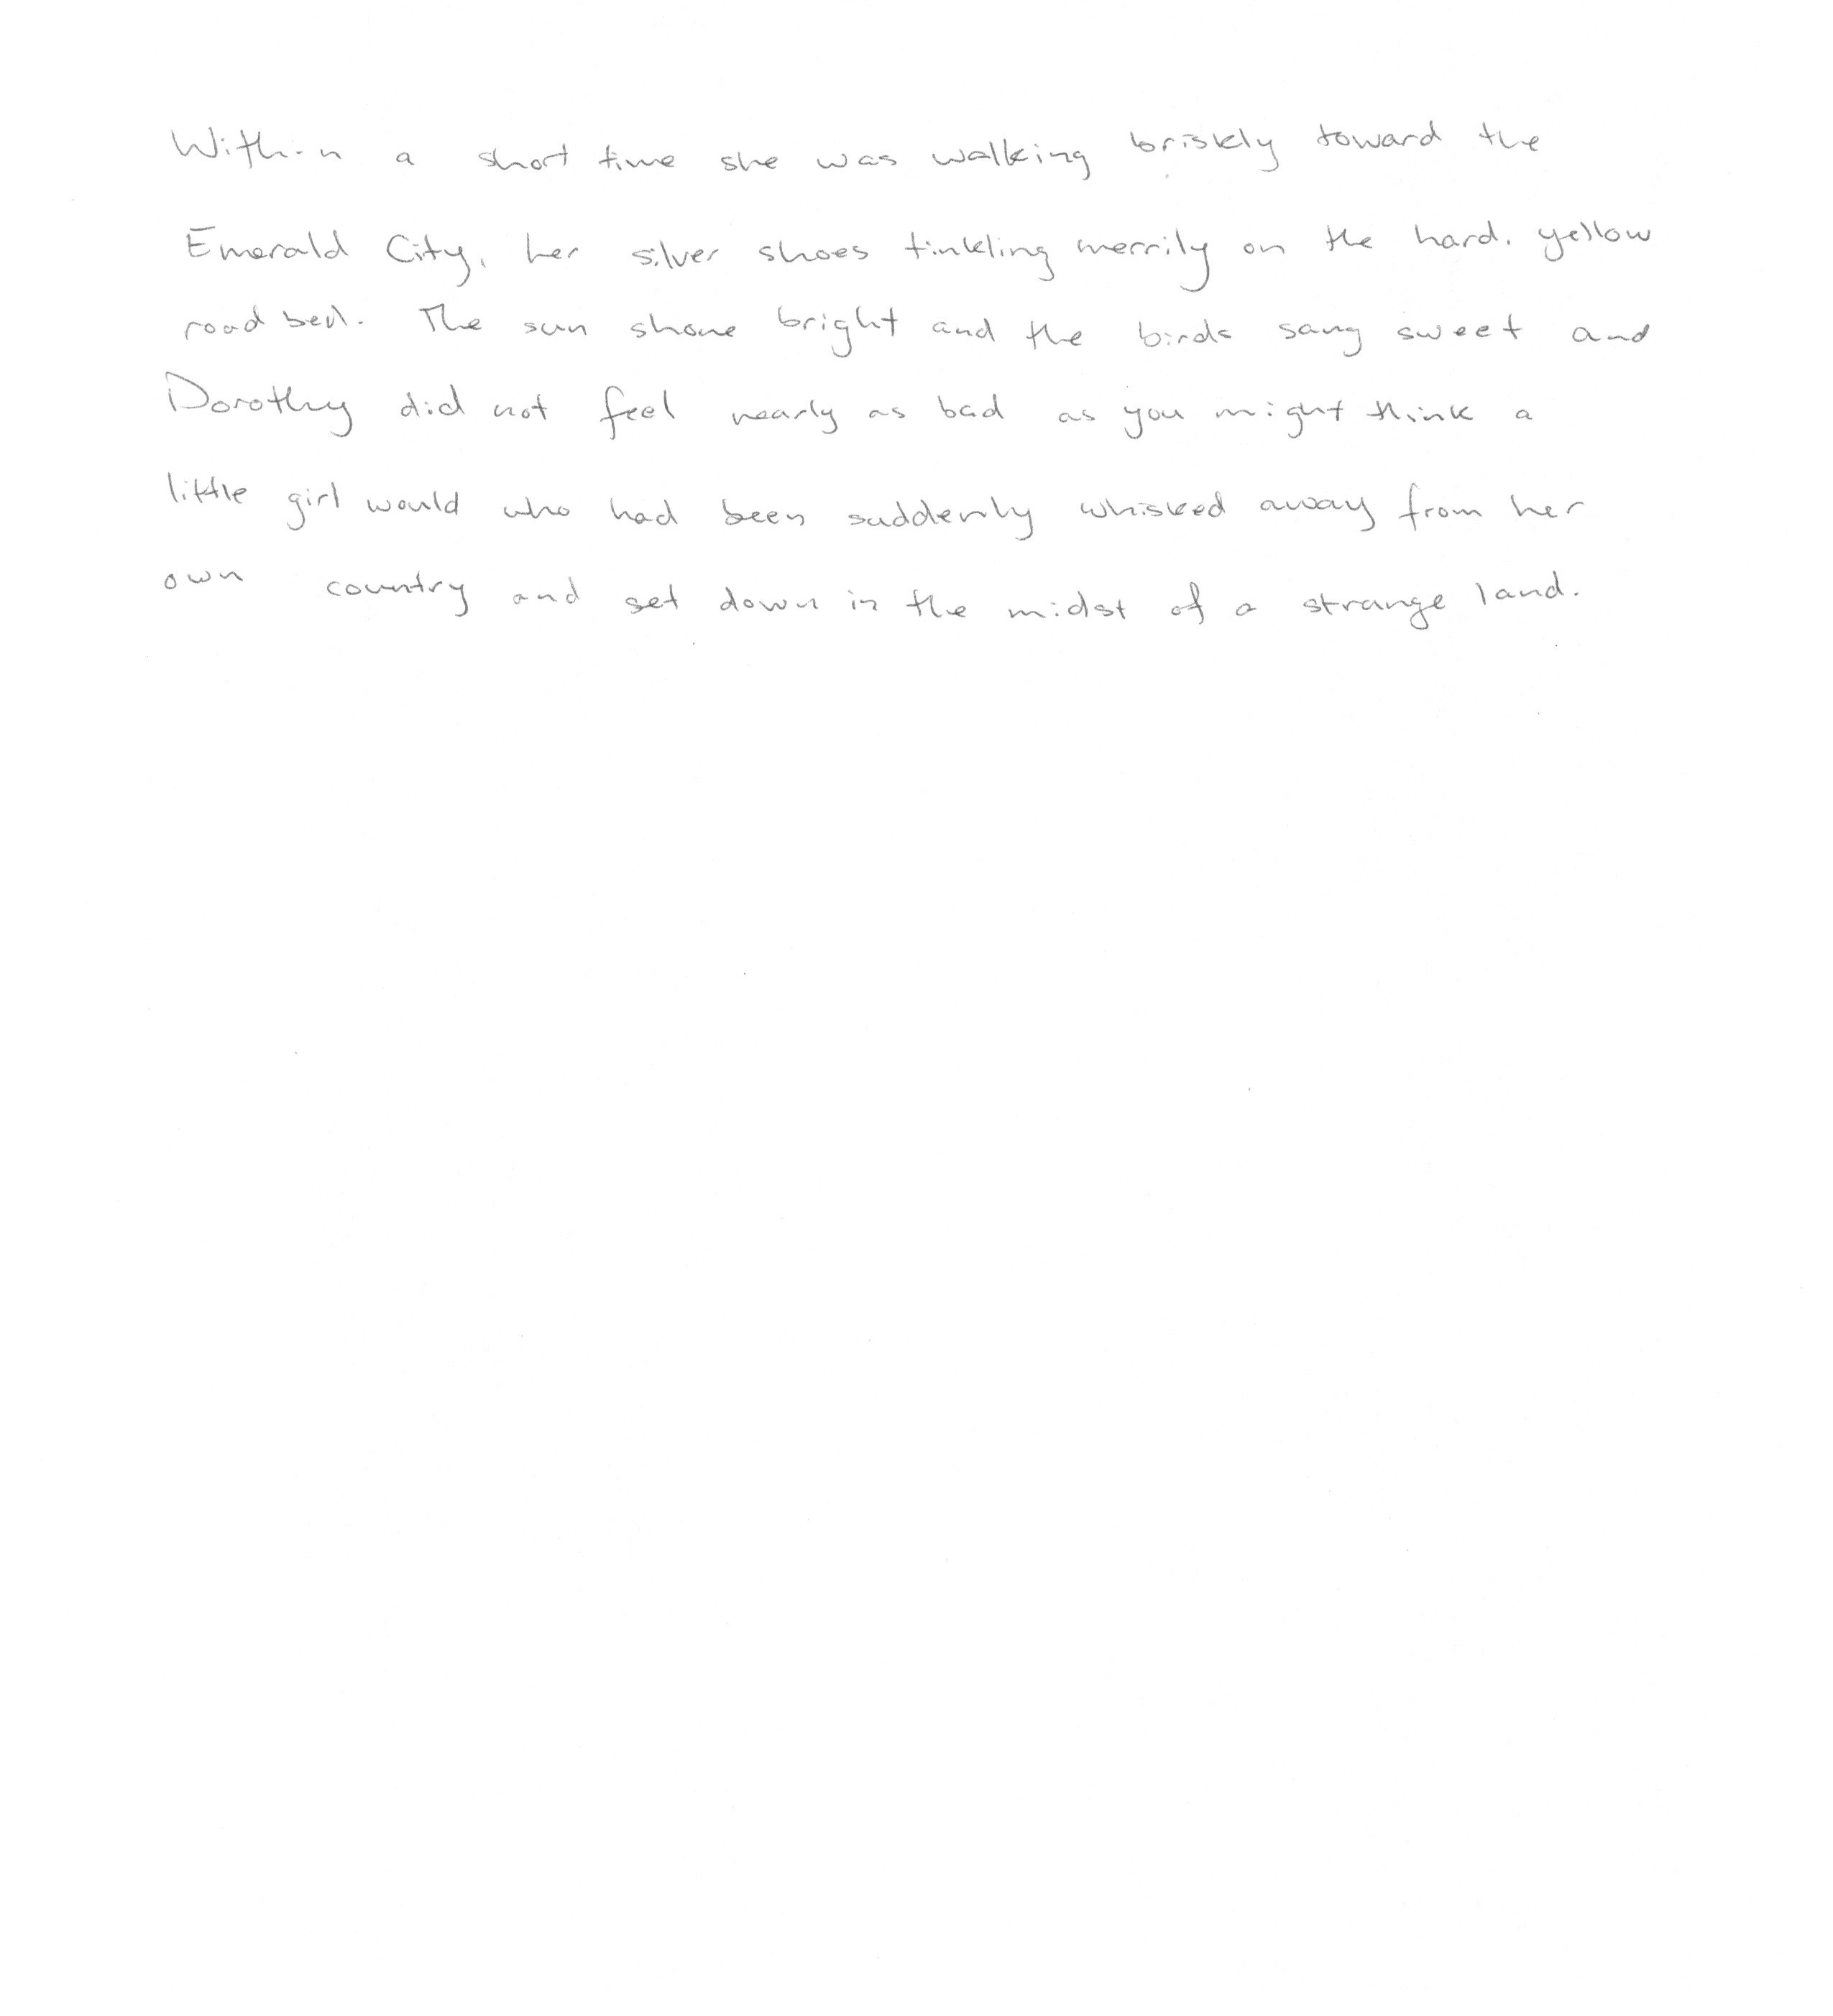 Within a short time she was walking briskly toward the
Emerald City, her silver shoes tinkling merrily on the hard, yellow
road bed. The sun shone bright and the birds sang sweet and
Dorothy did not feel nearly as bad as you might think a
little girl would who had been suddenly whisked away from her
own country and set down in the midst of a strange land.